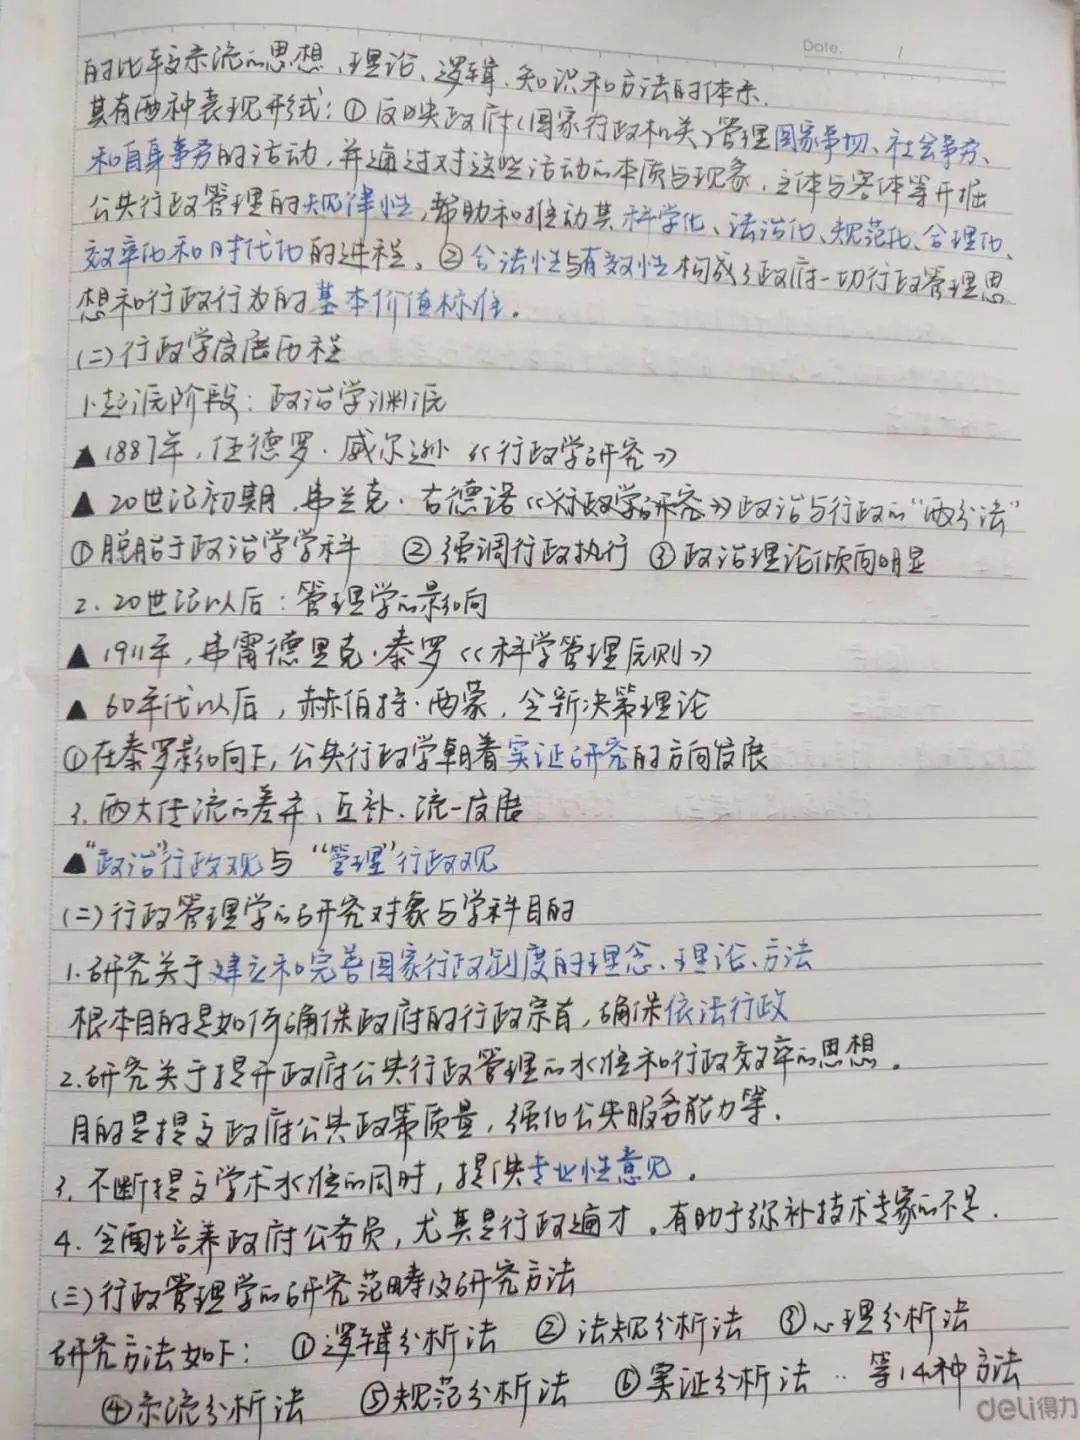 Date. 1
的比较系统的思想、理论、逻辑、知识和方法的体系.
具有两种表现形式：① 反映政府（国家行政机关）管理国家事物、社会事务、
和自身事务的活动，并通过对这些活动的本质与现象，主体与客体等开掘
公共行政管理的规律性，帮助和推动其科学化、法治化、规范化、合理化、
效率化和时代化的进程。② 合法性与有效性构成了政府一切行政管理思
想和行政行为的基本价值标准。
(二)行政学发展历程
1.起源阶段：政治学渊源
▲ 1887年，伍德罗·威尔逊《行政学研究》
▲ 20世纪初期，弗兰克·古德诺《行政学研究》政治与行政的“两分法”
①脱胎于政治学学科 ②强调行政执行 ③政治理论倾向明显
2. 20世纪以后：管理学的影响
▲ 1911年，弗雷德里克·泰罗《科学管理原则》
▲ 60年代以后，赫伯特·西蒙，全新决策理论
①在泰罗影响下，公共行政学朝着实证研究的方向发展
3. 两大传流的差异、互补、统一发展
▲“政治”行政观与“管理”行政观
(二)行政管理学的研究对象与学科目的
1.研究关于建立和完善国家行政制度的理念、理论、方法
根本目的是如何确保政府的行政宗旨，确保依法行政
2.研究关于提升政府公共行政管理的水准和行政效率的思想。
目的是提高政府公共政策质量，强化公共服务能力等.
3. 不断提高学术水准的同时，提供专业性意见。
4. 全面培养政府公务员，尤其是行政通才。有助于弥补技术专家的不足.
(三)行政管理学的研究范畴及研究方法
研究方法如下： ①逻辑分析法 ②法规分析法 ③心理分析法
④系统分析法 ⑤规范分析法 ⑥实证分析法 ·· 等14种方法
deli得力